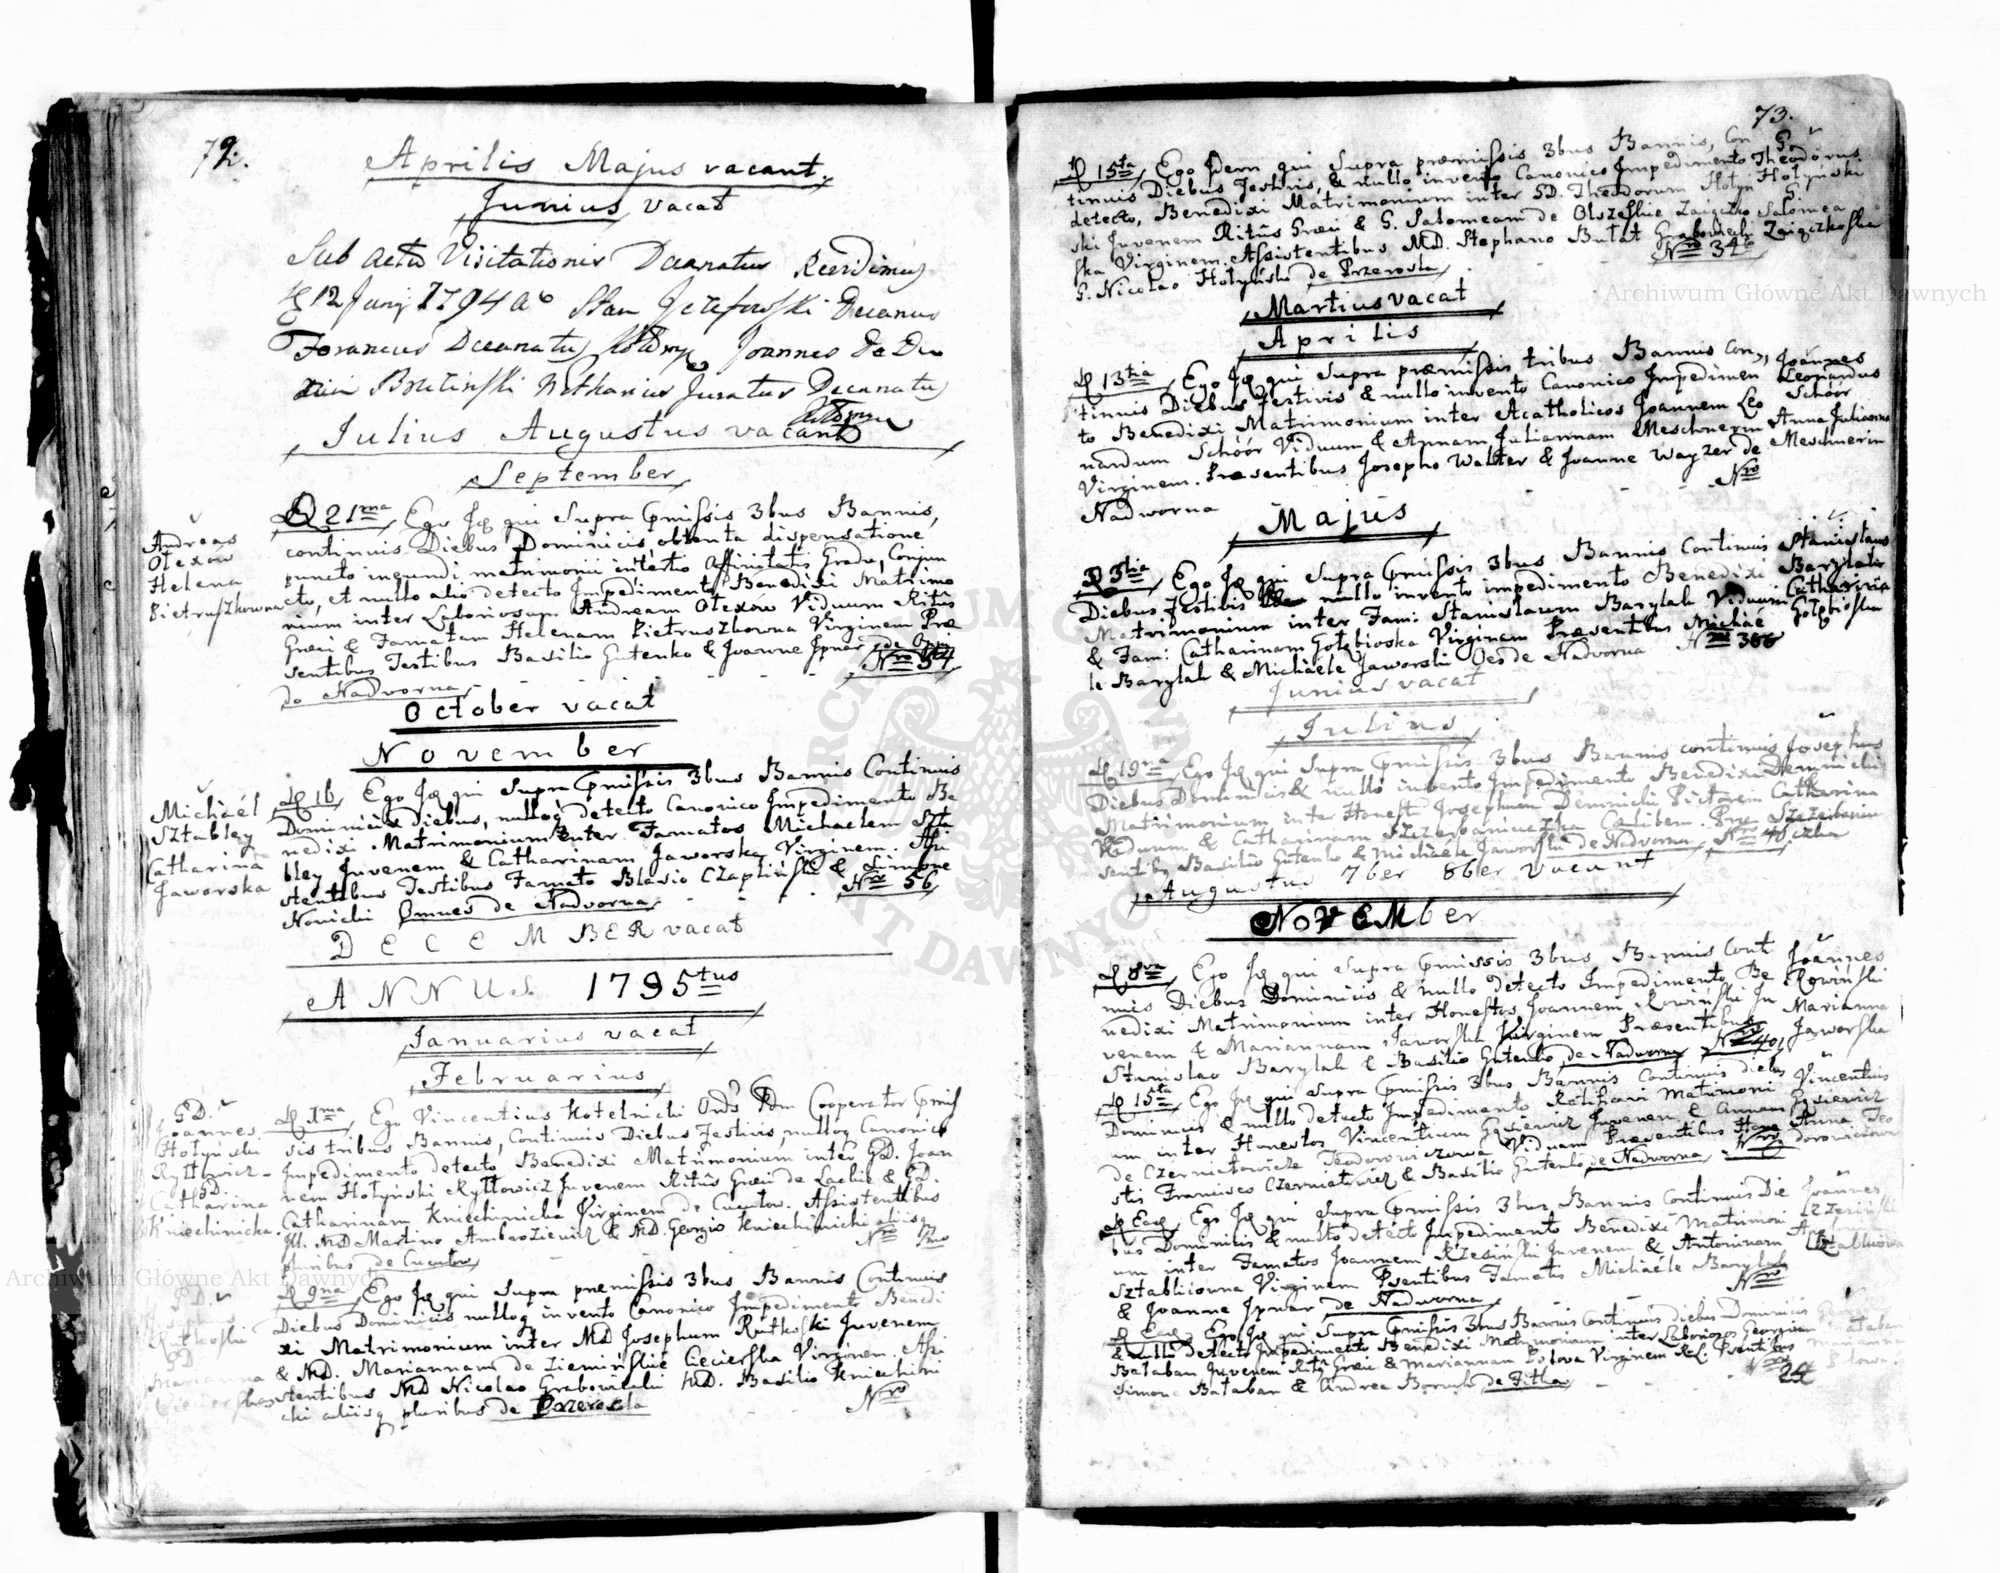 72.
Aprilis Majus vacant.
Junius vacat
Sub actu Visitationis Decanatus
12 Junij 1794 Stan Jezefowski Decanus
Foraneus Decanatus Joannes De
Notharius Juratus Decanatus
Julius Augustus vacant
September
Andreas
Olexow
Helena
Pietruszkowna
D 21ma Ego Jd qui Supra pmissis 3bus Bannis,
continuis Diebus Dominicis obtenta dispensatione
puncto ineundi matrimonii in tertio Affinitatis Gradu, Conjun
cto, et nullo alio detecto Impedimento Benedixi Matrimo
nium inter Laboriosum Andream Olexow Viduum Ritûs
Græci & Famatam Helenam Pietruszkowna Virginem Præ
sentibus Testibus Basilio Gutenko & Joanne Ipnar
de Nadworna Nro 54
October vacat
November
Michaël
Sztabley
Catharina
Jaworska
D 16 Ego Jd qui Supra pmissis 3bus Bannis Continuis
Dominicis diebus, nulloq detecto Canonico Impedimento Be
nedixi Matrimonium inter Famatos Michaelem Szta
bley Juvenem & Catharinam Jaworska Virginem. Assi
stentibus Testibus Famato Blasio Czapliński & Simone
Nowicki Omnes de Nadworna Nro 56
DECEMBER vacat
ANNUS 1795tus
Januarius vacat
Februarius
GD.
Joannes
Hołyński
Ryttowicz
GD.
Catharina
Kniechinicka.
D 1ma Ego Vincentius Kotelnicki Ords Pdm Cooperator pmis
sis tribus Bannis, Continuis Diebus Festivis, nulloq Canonico
Impedimento detecto Benedixi Matrimonium inter GD. Joan
nem Hołyński Ryttowicz Juvenem Ritûs Græci de Lackie & GD.
Catharinam Kniechinicka Virginem de Cucułow. Assistentibus
M. MD Martino Ambrożiewicz & MD. Georgio Kniechinicki aliisq
pluribus de Cucułow Nro
Rutkoski
GD.
Marianna
Ciecierska
D 9na Ego Jd qui Supra præmissis 3bus Bannis Continuis
Diebus Dominicis nulloq invento Canonico Impedimento Benedi
xi Matrimonium inter MD Josephum Rutkoski Juvenem
& MD. Mariannam de Ziemińskie Ciecierska Virginem. Assi
stentibus MD Nicolao Grabowiecki MD. Basilio Kniechini
cki aliisq pluribus de Przerosla Nro
73.
D 15ta Ego Idem qui Supra præmissis 3bus Bannis, Con
tinuis Diebus Festivis, & nullo invento Canonico Impedimento
detecto, Benedixi Matrimonium inter GD. Theodorum Hołyń
ski Juvenem Ritûs Græci & G. Salomeam de Olszeskie Zaiączko
ska Virginem. Assistentibus MD. Stephano Bułat Grabowiecki
G. Nicolao Hołyński de Przerosla Nro 34
G.
Theodorus
Hołyński
G.
Salomea
Zaiączkoska
Martius vacat
Aprilis
D 13tia Ego Jd qui Supra præmissis tribus Bannis Con
tinuis Diebus festivis & nullo invento Canonico Impedimen
to Benedixi Matrimonium inter Acatholicos Joannem Leo
nardum Schöör Viduum & Annam Juliannam Meschnerin
Virginem. Præsentibus Josepho Walter & Joanne Wayzer de
Nadworna Nro
Joannes
Leonardus
Schöör
Anna Julianna
Meschnerin
Majus
D 3tia Ego Jd qui Supra pmissis 3bus Bannis Continuis
Diebus Festivis nullo invento impedimento Benedixi
Matrimonium inter Fam: Stanislaum Barylak Viduum
& Fam: Catharinam Gołębioska Virginem Præsentibus Michaë
le Barylak & Michaële Jaworski Oes de Nadworna Nro 366
Stanislaus
Barylak
Catharina
Gołębioska
Junius vacat
Julius
D 19na Ego Jd qui Supra pmissis 3bus Bannis continuis
Diebus Dominicis & nullo invento Impedimento Benedixi
Matrimonium inter Honest Josephum Demnicki Pictorem
Viduum & Catharinam Szczerbaniuczka Cælibem. Præ
sentib Basilio Gutenko & Michaële Jaworski de Nadworna Nro 40
Josephus
Demnicki
Catharina
Szczerbaniu
czka
Augustus 7ber 8ber vacant
NOVEMber
D 8va Ego Jd qui Supra pmissis 3bus Bannis Cont
nuis Diebus Dominicis & nullo detecto Impedimento Be
nedixi Matrimonium inter Honestos, Joannem Rowiński Ju
venem & Mariannam Jaworska Virginem Præsentibus
Stanislao Barylak & Basilio Gutenko de Nadworna Nro 40
Joannes
Rowiński
Marianna
Jaworska
D 15ta Ego Jd qui Supra pmissis 3bus Bannis Continuis diebus
Dominicis & nullo detecto Impedimento Ratificavi Matrimoni
um inter Honestos Vincentium Gąsiewicz Juvenem & Annam
de Czerniatowicze Teodorowiczowa Viduam Præsentibus Hone
stis Francisco Czerniatowicz & Basilio Gutenko de Nadworna Nro
Vincentius
Gąsiewicz
Anna Teo
dorowiczowa
D Eadē Ego Jd qui Supra pmissis 3bus Bannis Continuis Die
bus Dominicis & nullo detecto Impedimento Benedixi Matrimoni
um inter Famatos Joannem Rzesiński Juvenem & Antoninam
Sztablicowna Virginem Psentibus Famatis Michaële Barylak
& Joanne Ipnar de Nadworna Nro
Joannes
Rzesiński
D Eadē Ego Jd qui Supra pmissis 3bus Bannis Continuis diebus Dominicis
& nullo detecto Impedimento Benedixi Matrimonium inter Laboriosos Georgium
Bataban Juvenem Ritûs Græci & Mariannam Pslowa Virginem R.L. Psentibus
Simone Bataban & Andrea de Pitka Nro 24
Archiwum Główne Akt Dawnych
Archiwum Główne Akt Dawnych
ARCHIWUM GŁÓWNE AKT DAWNYCH